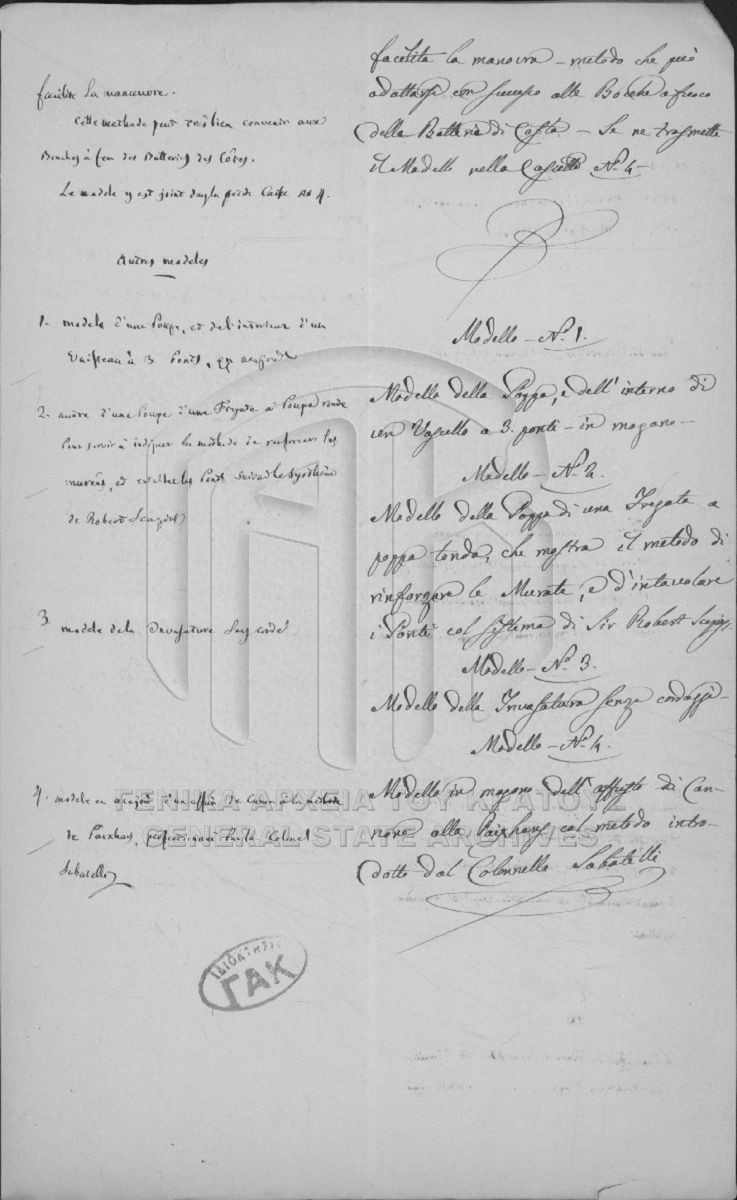 facilite la manœuvre.
Cette methode peut très bien convenir aux
Bouches à feu des Batteries des Côtes.
Le modele y est joint dans la petite Caisse No 4.
Autres modeles
1. modele d'une Poupe, et de l'interieur d'un
Vaisseau à 3 Ponts, en acajou
2. autre d'une Poupe d'une Fregate à Poupe ronde
pour servir à indiquer la methode de renforcer les
murailles, et les Ponts suivant le système
de Robert
3. modele de la Invasature sans cordes
4. modele en acajou d'un affût de Canon à la methode
de Paixhans, perfectionné par le Colonel
Sabatelli
facilita la manovra – metodo che può
adottarsi con successo alle Bocche a fuoco
della Batterie di Costa – Se ne trasmette
il Modello nella Cassetta No. 4 –
Modello – No. 1.
Modello della Poppa, e dell' interno di
un Vascello a 3. ponti – in mogano –
Modello – No. 2.
Modello della Poppa di una Fregata a
poppa tonda, che mostra il metodo di
rinforzare le Murate, e d'intavolare
i Ponti col sistema di Sir Robert
Modello – No. 3.
Modello della Invasatura senza cordaggi –
Modello – No. 4.
Modello in mogano dell' affusto di Can-
none alla Paixhans col metodo intro-
dotto dal Colonnello Sabatelli
ΓΕΝΙΚΑ ΑΡΧΕΙΑ ΤΟΥ ΚΡΑΤΟΥΣ
GENERAL STATE ARCHIVES
ΙΔΙΟΚΤΗΣΙΑ
ΓΑΚ